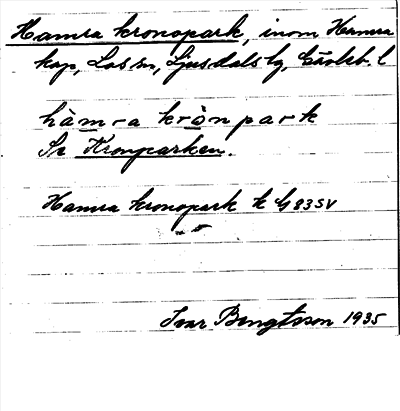 Hamra kronopark, inom Hamra
kap, Los sn, Ljusdals tg, Gävleb. l
hàmra krònpark
Sr Kronparken.
Hamra kronopark k G 83 SV
Ivar Bengtsson 1935